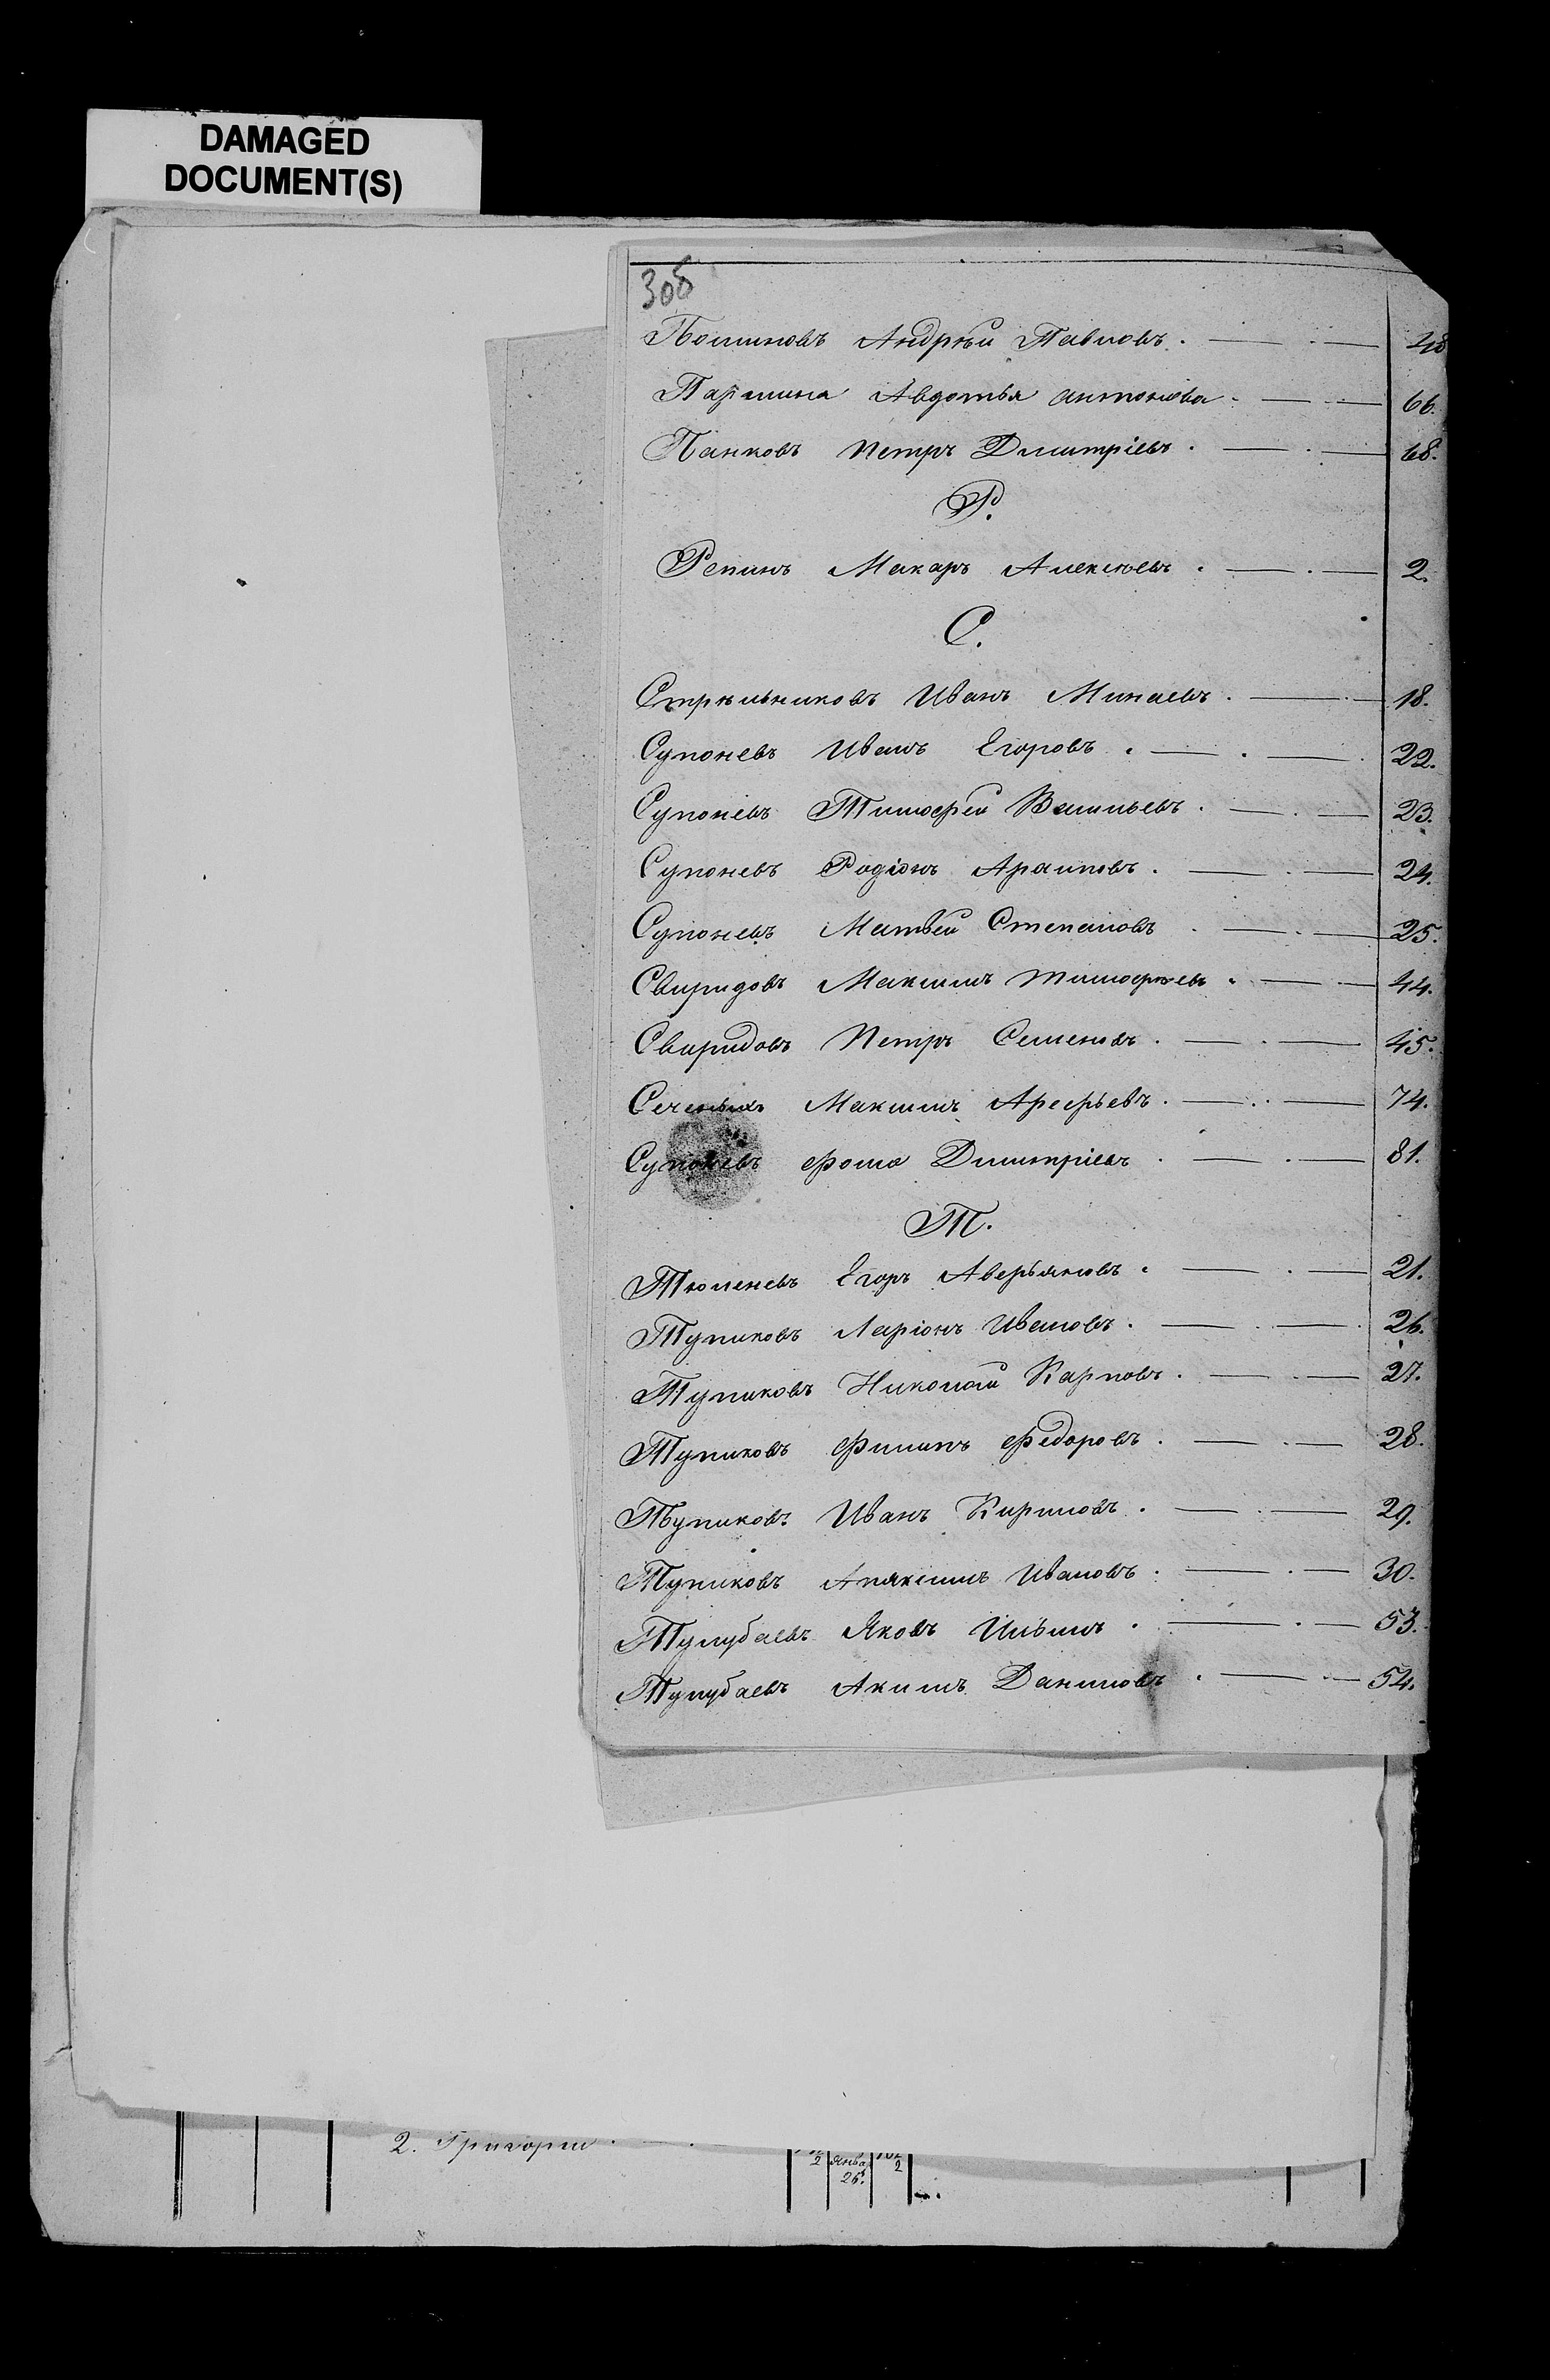 DAMAGED
DOCUMENT(S)
306
Поминовъ Андрѣй Павловъ. 48
Паршина Авдотья Антонова 66.
Панковъ Петръ Димитріевъ. 68.
Р.
Репинъ Макаръ Алексѣевъ. 2.
С.
Стрѣльниковъ Иванъ Минаевъ. 18.
Супоневъ Иванъ Егоровъ. 22.
Супоневъ Тимофей Васильевъ. 23.
Супоневъ Родіонъ Архиповъ. 24.
Супоневъ Матвей Степановъ 25.
Свиридовъ Максимъ Тимофѣевъ. 44.
Свиридовъ Петръ Семеновъ. 45.
Максимъ Арефьевъ. 74.
Супоневъ Фома Димитріевъ. 81.
Т.
Тюпеневъ Егоръ Аверьяновъ. 21.
Тупиковъ Ларіонъ Ивановъ. 26.
Тупиковъ Николай Карповъ. 27.
Тупиковъ Филипъ Федоровъ. 28.
Тупиковъ Иванъ Кириловъ. 29.
Тупиковъ Апяксимъ Ивановъ. 30.
Тулубаевъ Яковъ Ильинъ. 53.
Тулубаевъ Акимъ Даниловъ. 54.
2. Григорий
2 Янва 2
26.